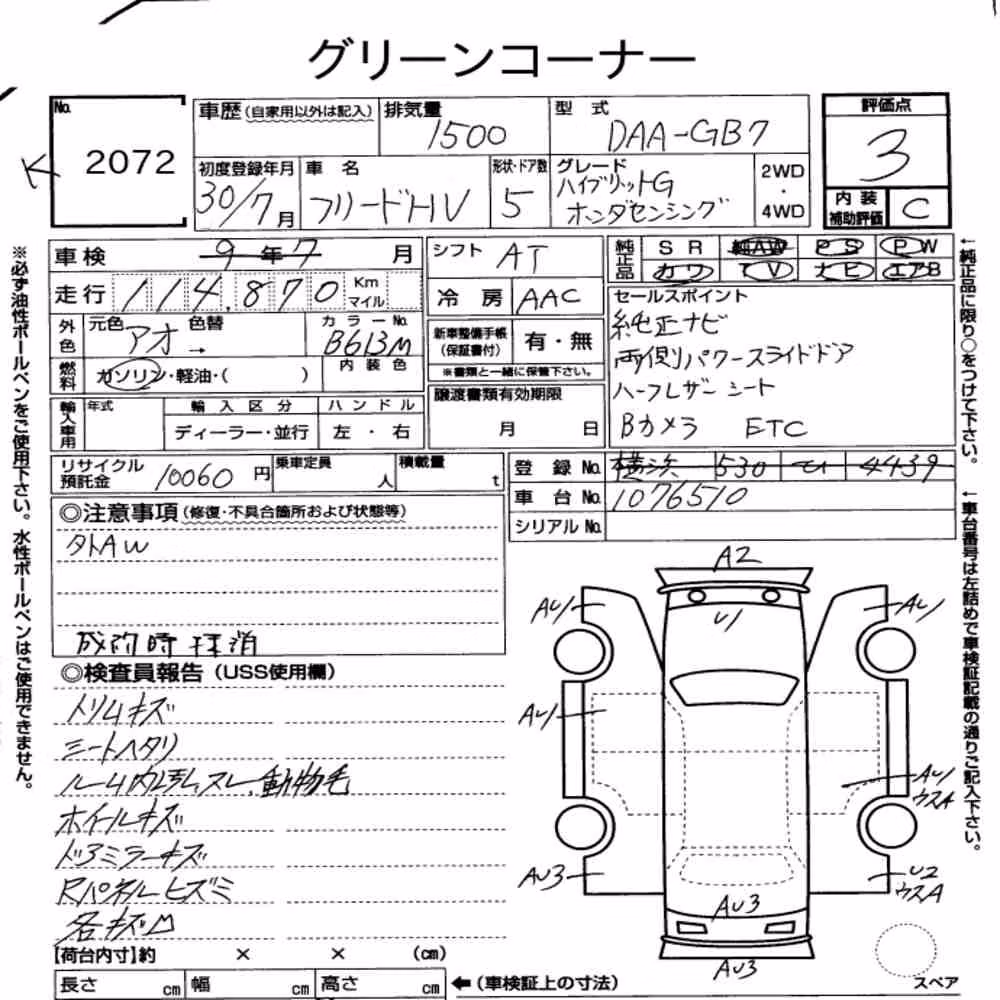 グリーンコーナー
No. 2072
K
車歴 (自家用以外は記入)
排気量 1500
型式 DAA-GB7
評価点 3
初度登録年月 30/7月
車名 フリードHV
形状・ドア数 5
グレード ハイブリットG
ホンダセンシング
2WD
・
4WD
内装補助評価 C
車検 9年7月
走行 114,870 Km マイル
シフト AT
冷房 AAC
純正品 SR 純AW PS PW
カワ TV ナビ エアB
外色 元色 アオ 色替 →
カラーNo. B613M
内装色
燃料 ガソリン・軽油・( )
新車整備手帳(保証書付) 有・無
※書類と一緒に保管下さい。
セールスポイント
純正ナビ
両側パワースライドドア
ハーフレザーシート
Bカメラ ETC
譲渡書類有効期限
月 日
輸入車用 年式 輸入区分 ハンドル
ディーラー・並行 左・右
リサイクル預託金 10060円
乗車定員 人
積載量 t
登録No. 横浜 530 4439
車台No. 1076510
シリアルNo.
◎注意事項 (修復・不具合箇所および状態等)
外AW
◎検査員報告 (USS使用欄)
トリムキズ
シートヘタリ
ルーム内 スレ、動物毛
ホイールキズ
ドアミラーキズ
Rパネルヒズミ
各キズ凹
【荷台内寸】約 × × (cm)
長さ cm 幅 cm 高さ cm
←(車検証上の寸法)
A2
U1
AU1
AU1
AU1
AU1
ウスA
AU3
U2
ウスA
AU3
AU3
スペア
※必ず油性ボールペンをご使用下さい。水性ボールペンはご使用できません。
←純正品に限り○をつけて下さい。
←車台番号は左詰めで車検証記載の通りご記入下さい。